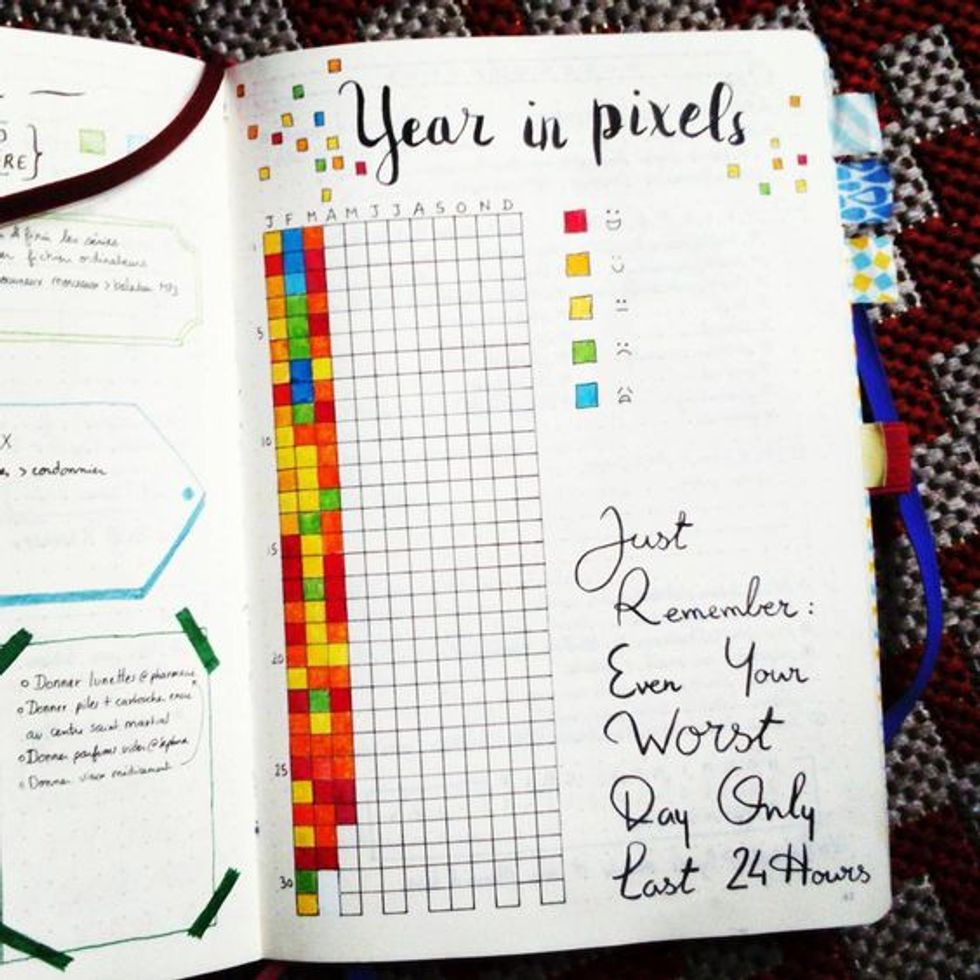 RE}
& finir les séries
fiction ordinateur
morceaux > baladeur MP3
X
> cordonnier
o Donner lunettes @ pharmacie
o Donner piles + cartouche encre
au centre saint martial
o Donner parfums vides @
o Donner vieux médicament
Year in pixels
J F M A M J J A S O N D
1
5
10
15
20
25
30
Just
Remember:
Even Your
Worst
Day Only
Last 24 Hours